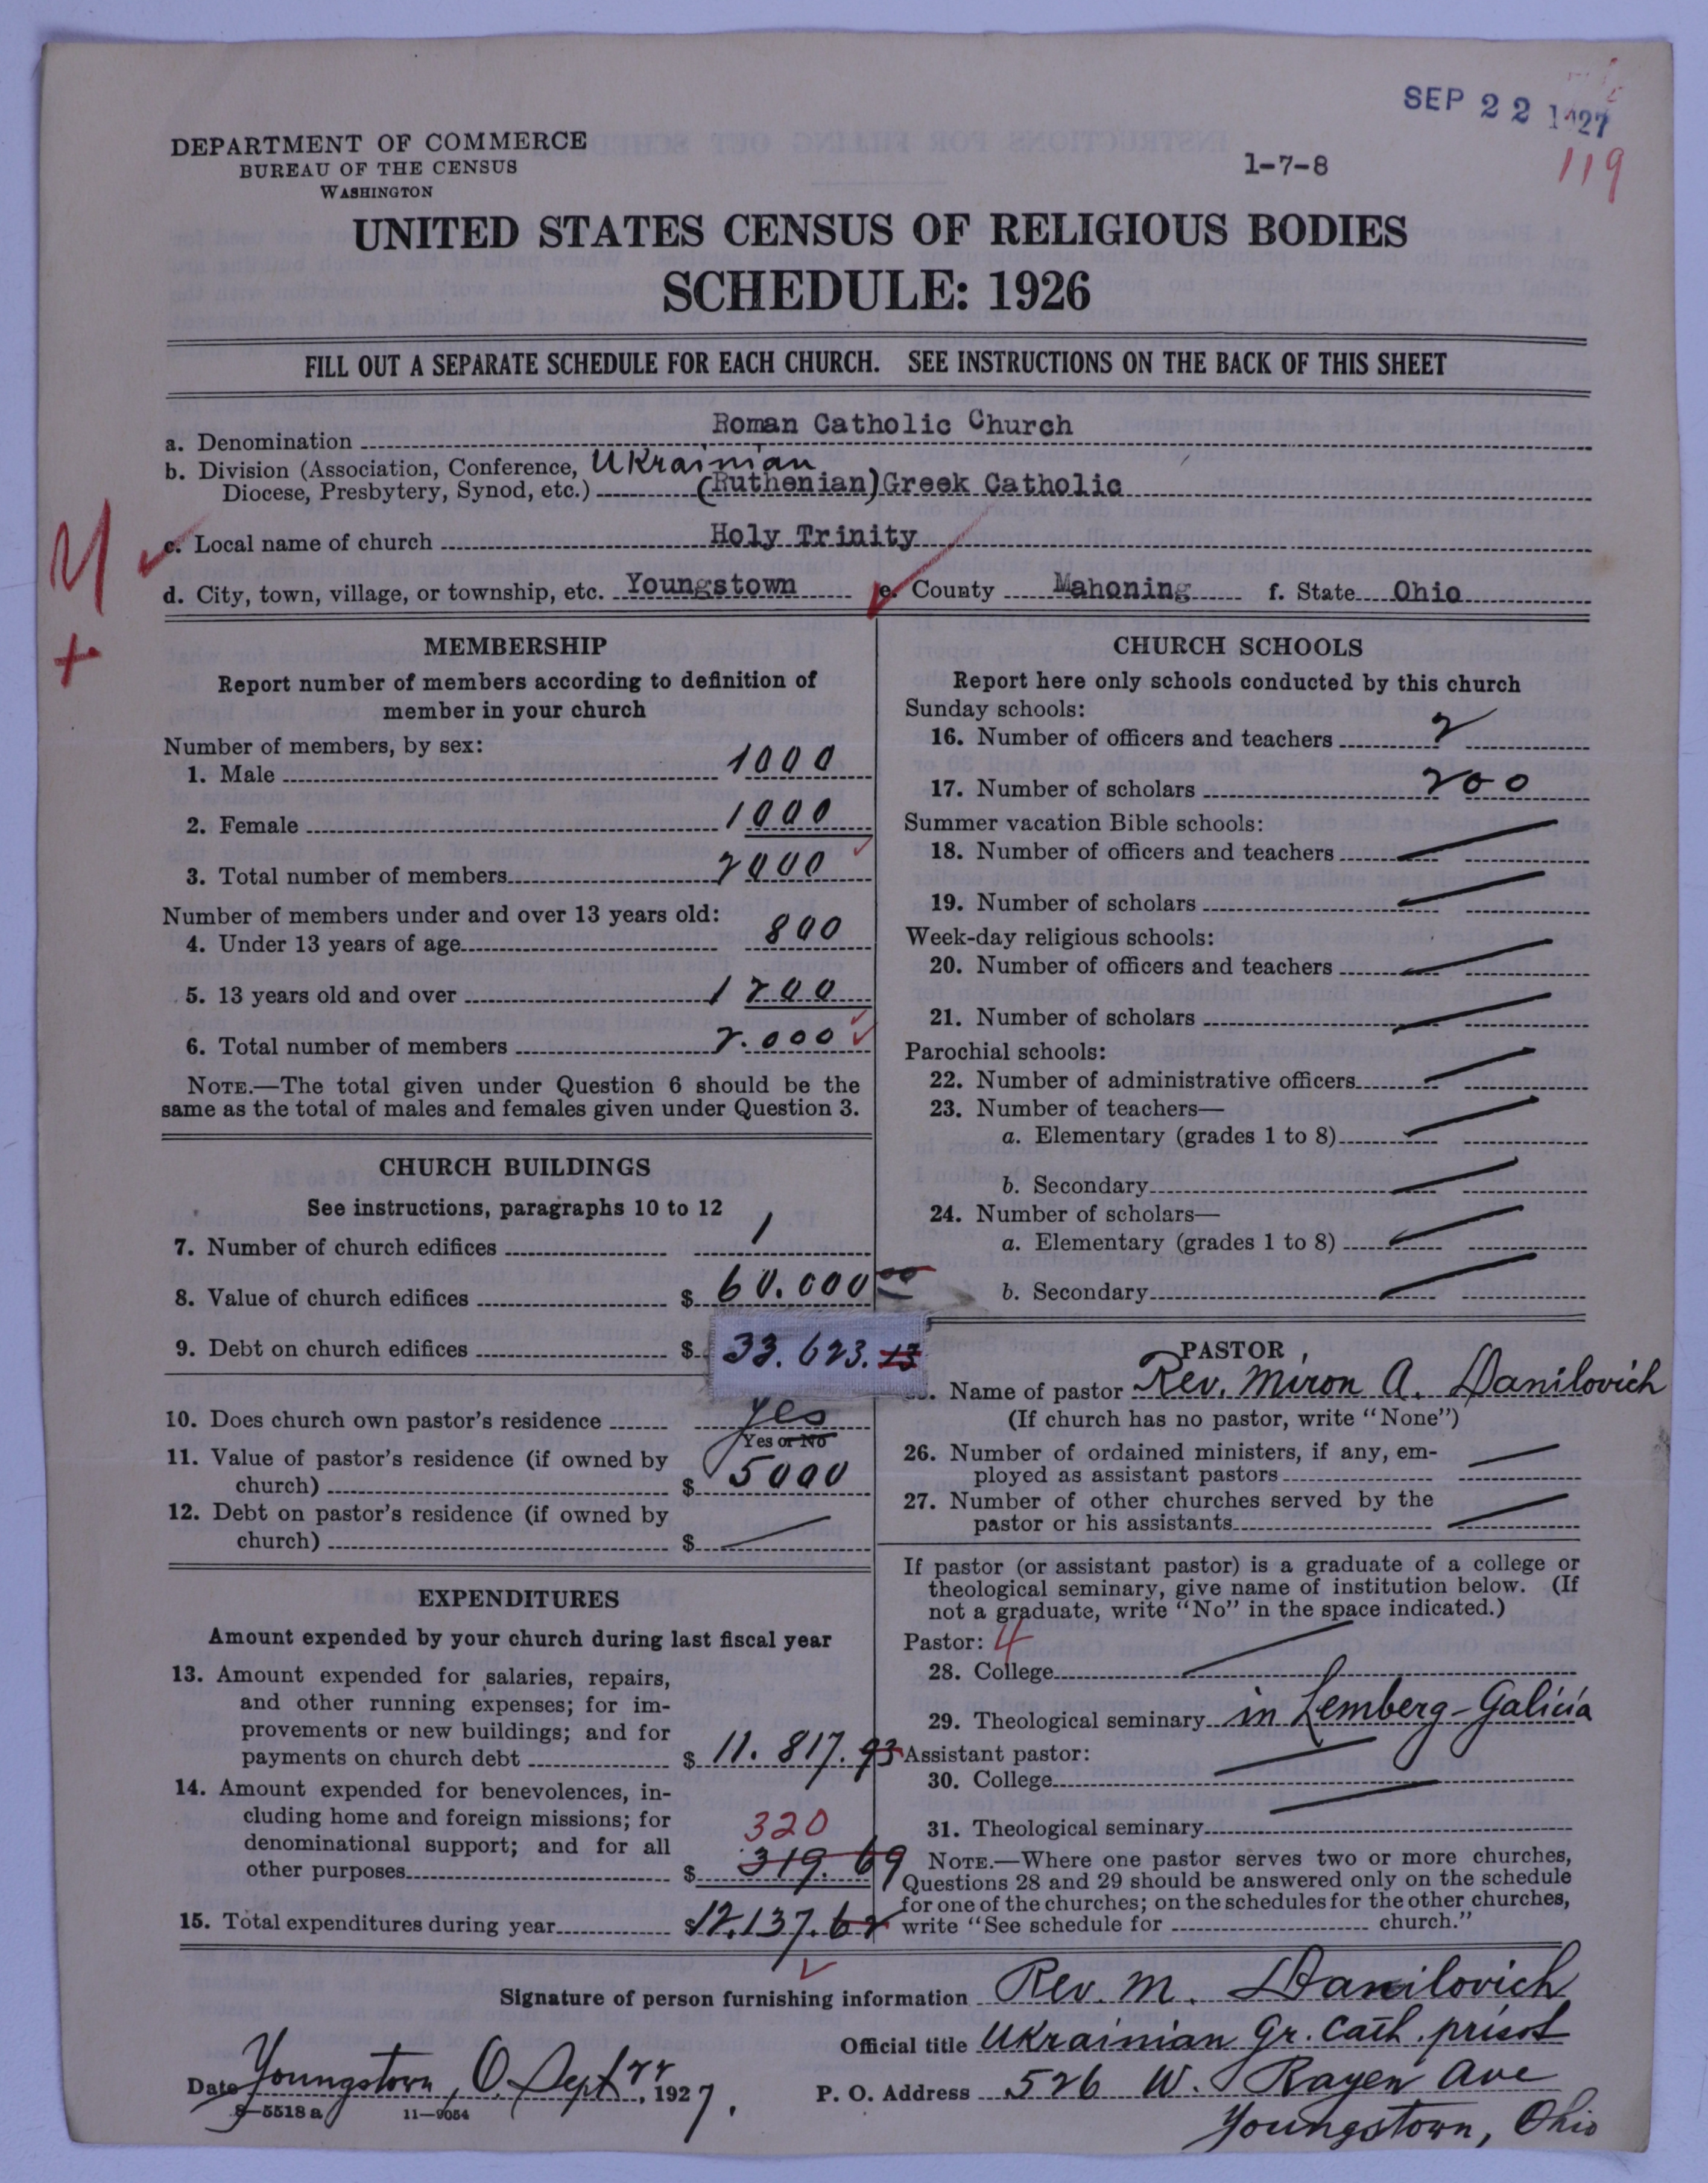 SEP 22 1927
119
DEPARTMENT OF COMMERCE
BUREAU OF THE CENSUS
WASHINGTON
1-7-8
UNITED STATES CENSUS OF RELIGIOUS BODIES
SCHEDULE: 1926
FILL OUT A SEPARATE SCHEDULE FOR EACH CHURCH. SEE INSTRUCTIONS ON THE BACK OF THIS SHEET
a. Denomination Roman Catholic Church
b. Division (Association, Conference, Ukrainian
Diocese, Presbytery, Synod, etc.) (Ruthenian) Greek Catholic
c. Local name of church Holy Trinity
d. City, town, village, or township, etc. Youngstown e. County Mahoning f. State Ohio
MEMBERSHIP
Report number of members according to definition of
member in your church
Number of members, by sex:
1. Male 1000
2. Female 1000
3. Total number of members 2000
Number of members under and over 13 years old:
4. Under 13 years of age 800
5. 13 years old and over 1200
6. Total number of members 2.000
NOTE.—The total given under Question 6 should be the
same as the total of males and females given under Question 3.
CHURCH BUILDINGS
See instructions, paragraphs 10 to 12
7. Number of church edifices 1
8. Value of church edifices $ 60.000 00
9. Debt on church edifices $ 33.623.13
10. Does church own pastor's residence yes
Yes or No
11. Value of pastor's residence (if owned by
church) $ 5000
12. Debt on pastor's residence (if owned by
church) $
EXPENDITURES
Amount expended by your church during last fiscal year
13. Amount expended for salaries, repairs,
and other running expenses; for im-
provements or new buildings; and for
payments on church debt $ 11.817.93
14. Amount expended for benevolences, in-
cluding home and foreign missions; for
denominational support; and for all
320
other purposes $ 319.69
15. Total expenditures during year $12.137.62
CHURCH SCHOOLS
Report here only schools conducted by this church
Sunday schools:
16. Number of officers and teachers 2
17. Number of scholars 200
Summer vacation Bible schools:
18. Number of officers and teachers
19. Number of scholars
Week-day religious schools:
20. Number of officers and teachers
21. Number of scholars
Parochial schools:
22. Number of administrative officers
23. Number of teachers—
a. Elementary (grades 1 to 8)
b. Secondary
24. Number of scholars—
a. Elementary (grades 1 to 8)
b. Secondary
PASTOR
Name of pastor Rev. Miron A. Danilovich
(If church has no pastor, write "None")
26. Number of ordained ministers, if any, em-
ployed as assistant pastors
27. Number of other churches served by the
pastor or his assistants
If pastor (or assistant pastor) is a graduate of a college or
theological seminary, give name of institution below. (If
not a graduate, write "No" in the space indicated.)
Pastor: 4
28. College
29. Theological seminary in Lemberg-Galicia
Assistant pastor:
30. College
31. Theological seminary
NOTE.—Where one pastor serves two or more churches,
Questions 28 and 29 should be answered only on the schedule
for one of the churches; on the schedules for the other churches,
write "See schedule for church."
Signature of person furnishing information Rev. M. Danilovich
Official title Ukrainian Gr. Cath. prisot
Date Youngstown, O. Sept 22, 1927.
P. O. Address 526 W. Rayen Ave
Youngstown, Ohio
8-5518 a 11-9054